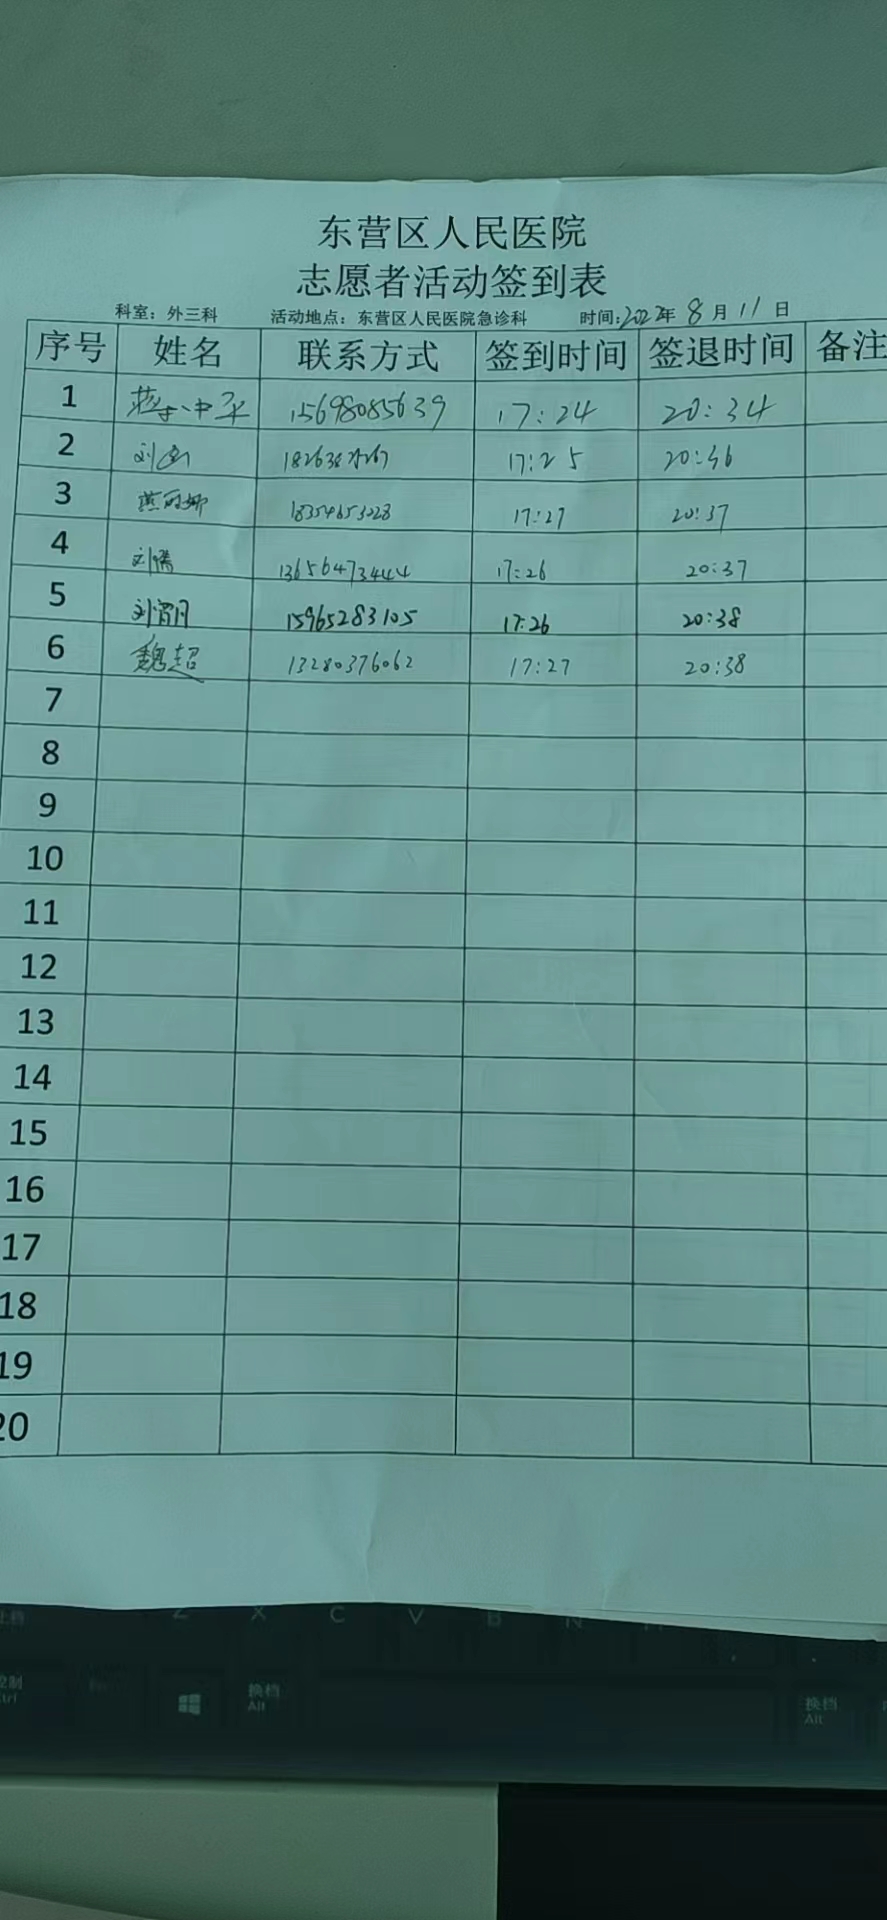 东营区人民医院
志愿者活动签到表
科室：外三科 活动地点：东营区人民医院急诊科 时间:2022年8月11日
序号 姓名 联系方式 签到时间 签退时间 备注
1 15698085639 17:24 20:34
2 刘 17:25 20:36
3 燕丽娜 18354653228 17:27 20:37
4 刘 13656473444 17:26 20:37
5 刘 15965283105 17:26 20:38
6 魏超 13280376062 17:27 20:38
7
8
9
10
11
12
13
14
15
16
17
18
19
20
Z X C V B N
Ctrl 换档 换档
Alt Alt